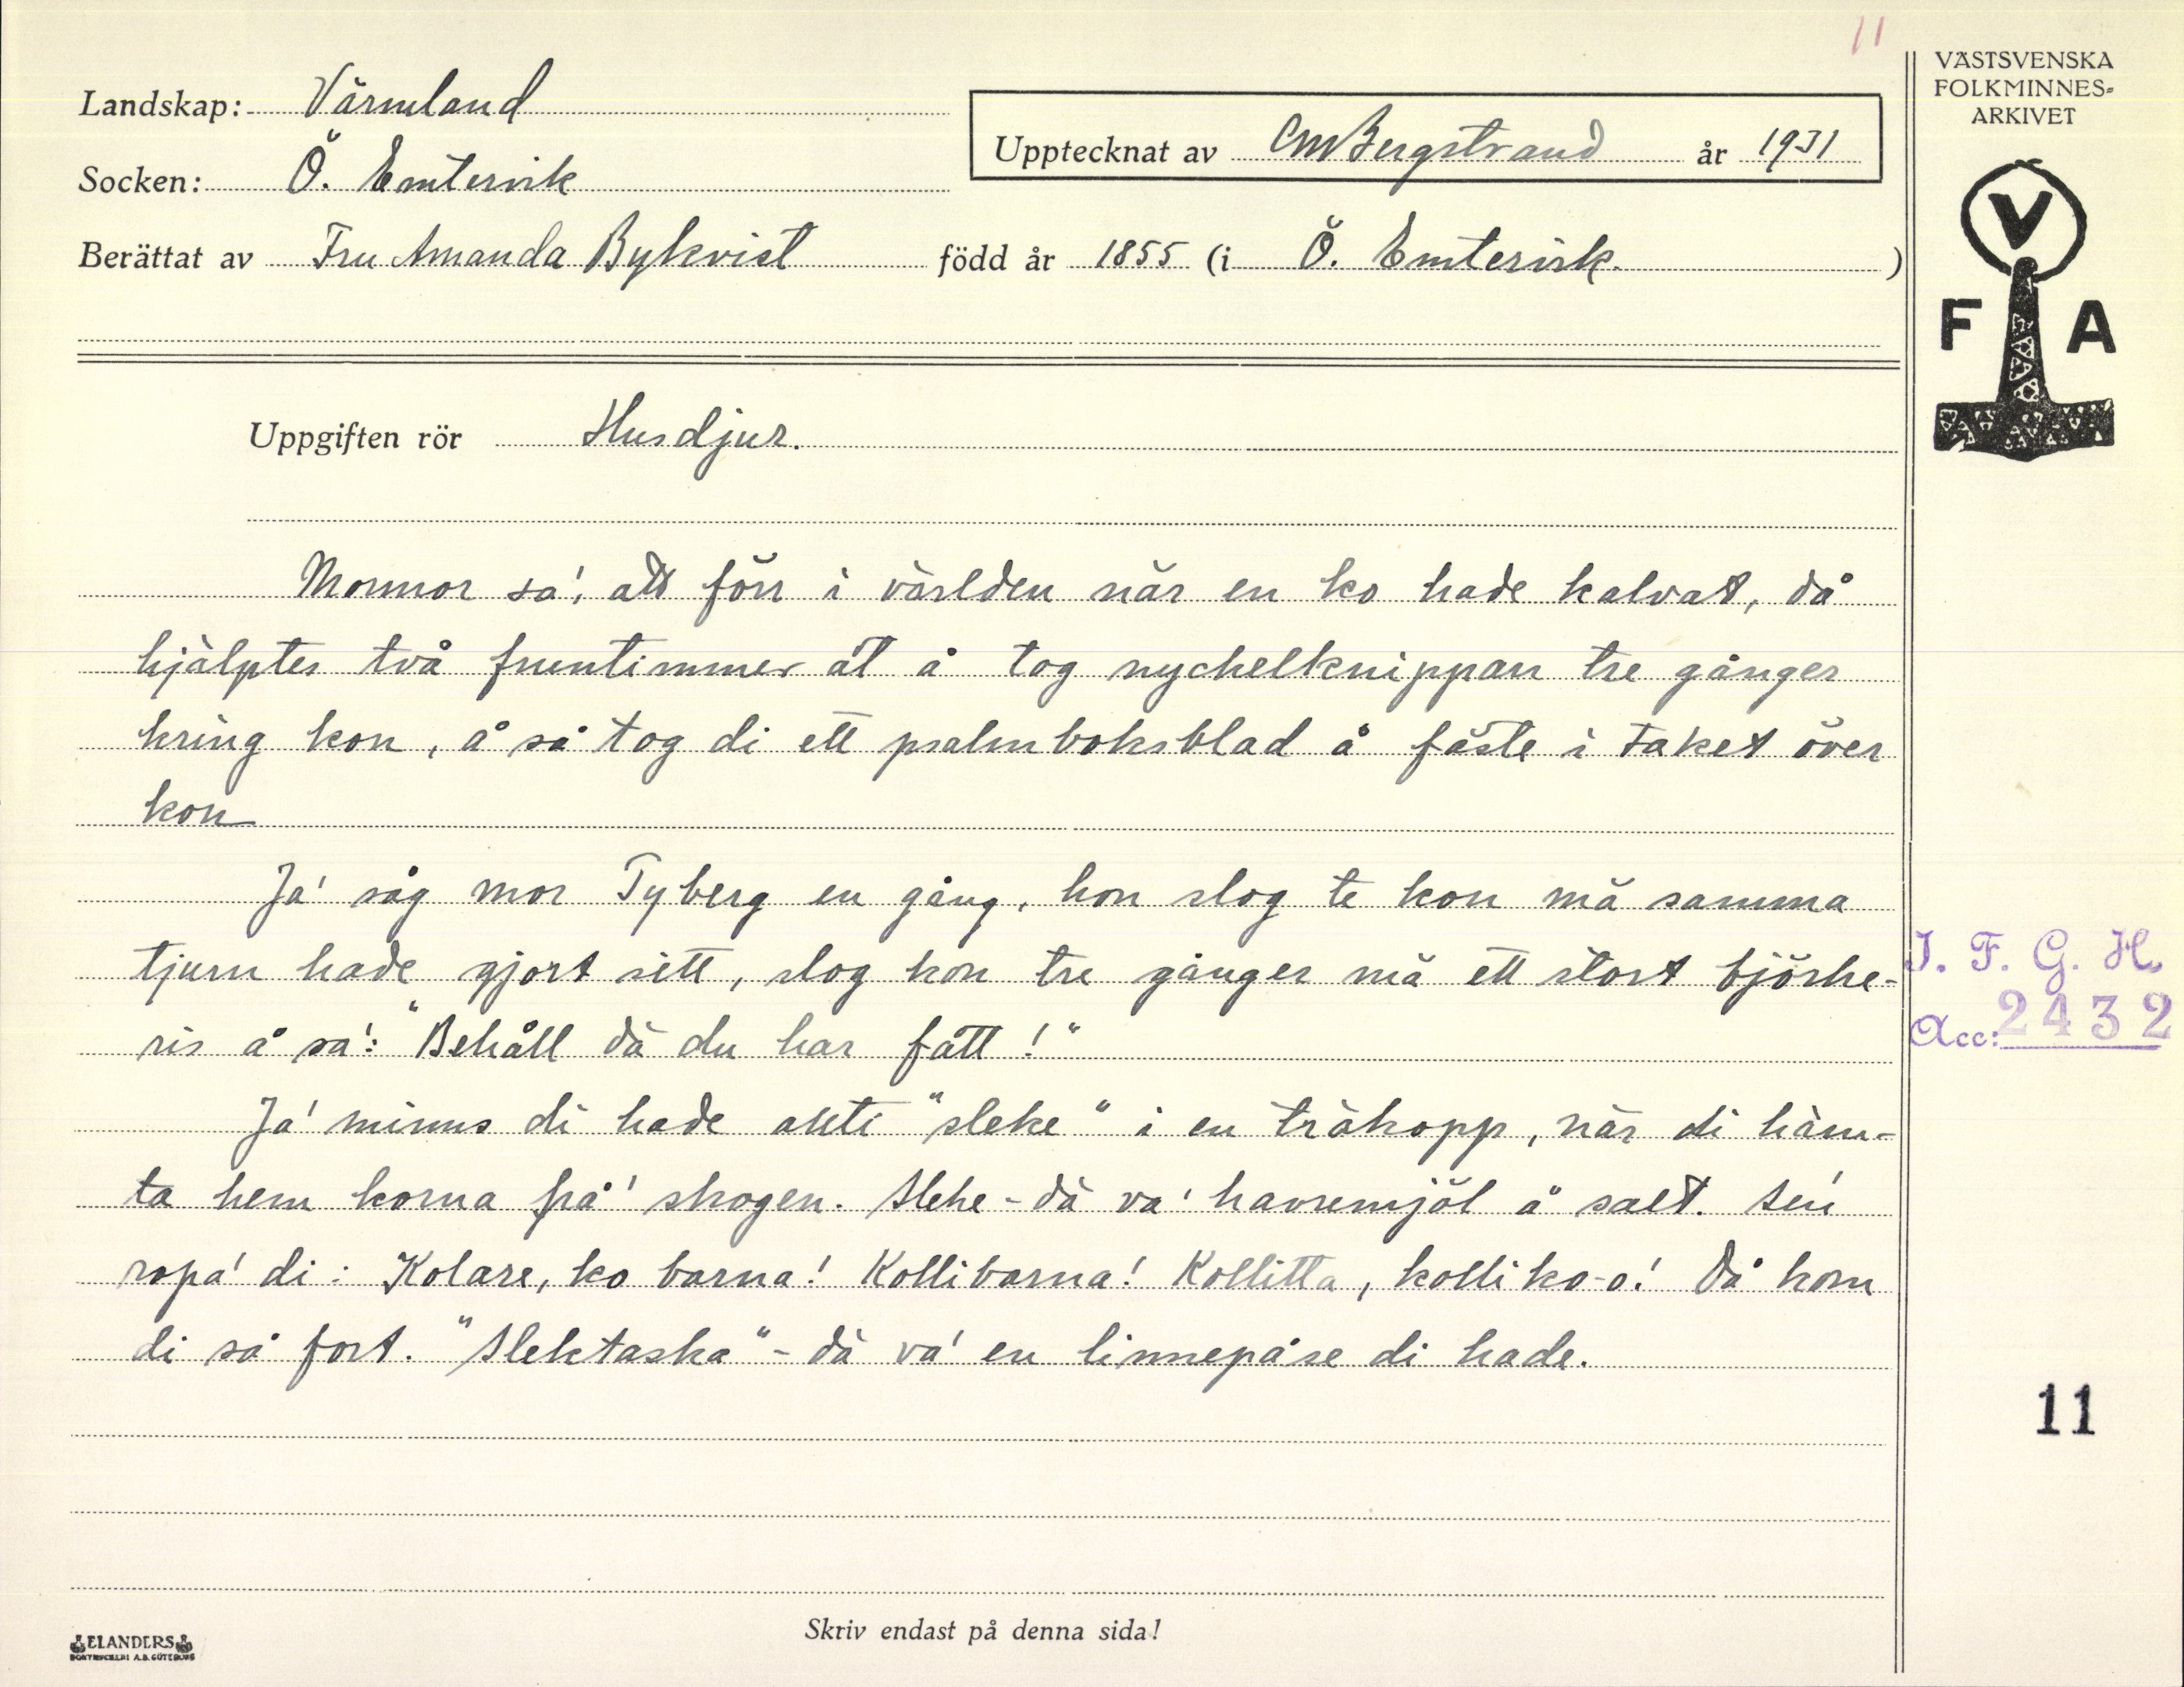 11
VÄSTSVENSKA
FOLKMINNES-
ARKIVET
Landskap: Värmland
Upptecknat av CMBergstrand år 1931
Socken: Ö. Emtervik
Berättat av Fru Amanda Bykvist född år 1855 (i Ö. Emtervik.)
V
F A
Uppgiften rör Husdjur.
Mormor sa', att förr i världen när en ko hade kalvat, då
hjälptes två fruntimmer åt å tog nychelknippan tre gånger
kring kon, å så tog di ett psalmboksblad å fäste i taket över
kon
Ja' såg mor Tyberg en gång, hon slog te kon mä samma
tjurn hade gjort sitt, slog hon tre gånger mä ett stort björke-
ris å sa': "Behåll dä du har fått!"
Ja' minns di hade allti "sleke" i en träkopp, när di häm-
ta hem korna frå' skogen. Sleke - dä va' havremjöl å salt. Sen'
ropa' di: Kolare, ko barna! Kollibarna! Kollitta, kolliko-o! Då kom
di så fort. "Slektaska" - dä va' en linnepåse di hade.
I. F. G. H.
Acc: 2432
11
Skriv endast på denna sida!
ELANDERS
BOKTRYCKERI A.B. GÖTEBORG